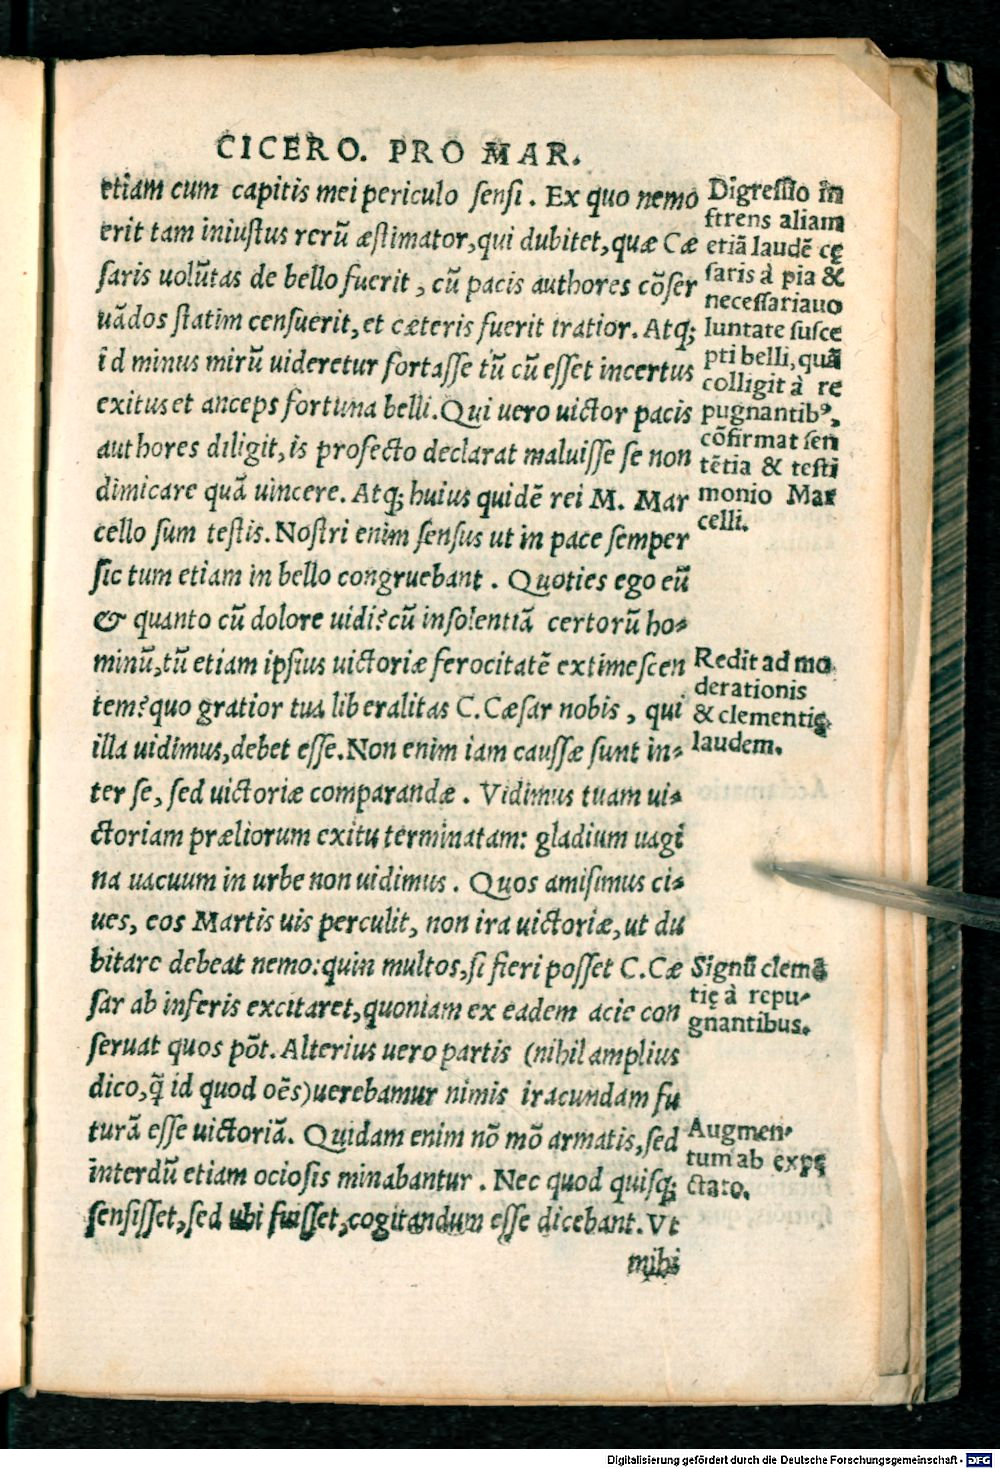 CICERO. PRO MAR.
etiam cum capitis mei periculo sensi. Ex quo nemo
erit tam iniustus rerū æstimator, qui dubitet, quæ Cæ
saris uolūtas de bello fuerit, cū pacis authores cōser
uādos statim censuerit, et cæteris fuerit iratior. Atq;
id minus mirū uideretur fortasse tū cū esset incertus
exitus et anceps fortuna belli. Qui uero uictor pacis
authores diligit, is profecto declarat maluisse se non
dimicare quā uincere. Atq; huius quidē rei M. Mar
cello sum testis. Nostri enim sensus ut in pace semper
sic tum etiam in bello congruebant. Quoties ego eū
& quanto cū dolore uidi? cū insolentiā certorū ho-
minū, tū etiam ipsius uictoriæ ferocitatē extimescen
tem? quo gratior tua liberalitas C. Cæsar nobis, qui
illa uidimus, debet esse. Non enim iam caussæ sunt in-
ter se, sed uictoriæ comparandæ. Vidimus tuam ui-
ctoriam præliorum exitu terminatam: gladium uagi
na uacuum in urbe non uidimus. Quos amisimus ci-
ues, eos Martis uis perculit, non ira uictoriæ, ut du
bitare debeat nemo: quin multos, si fieri posset C. Cæ
sar ab inferis excitaret, quoniam ex eadem acie con
seruat quos pōt. Alterius uero partis (nihil amplius
dico, q̃ id quod oēs) uerebamur nimis iracundam fu
turā esse uictoriā. Quidam enim nō mō armatis, sed
interdū etiam ociosis minabantur. Nec quod quisq;
sensisset, sed ubi fuisset, cogitandum esse dicebant. Vt
mihi
Digressio in
ferens aliam
etiā laudē cę
saris à pia &
necessaria uo
luntate susce
pti belli, quā
colligit à re
pugnantibꝰ,
cōfirmat sen
tētia & testi
monio Mar
celli.
Redit ad mo
derationis
& clementię
laudem.
Signū clemē
tię à repu-
gnantibus.
Augmen-
tum ab expę
ctato.
Digitalisierung gefördert durch die Deutsche Forschungsgemeinschaft - DFG